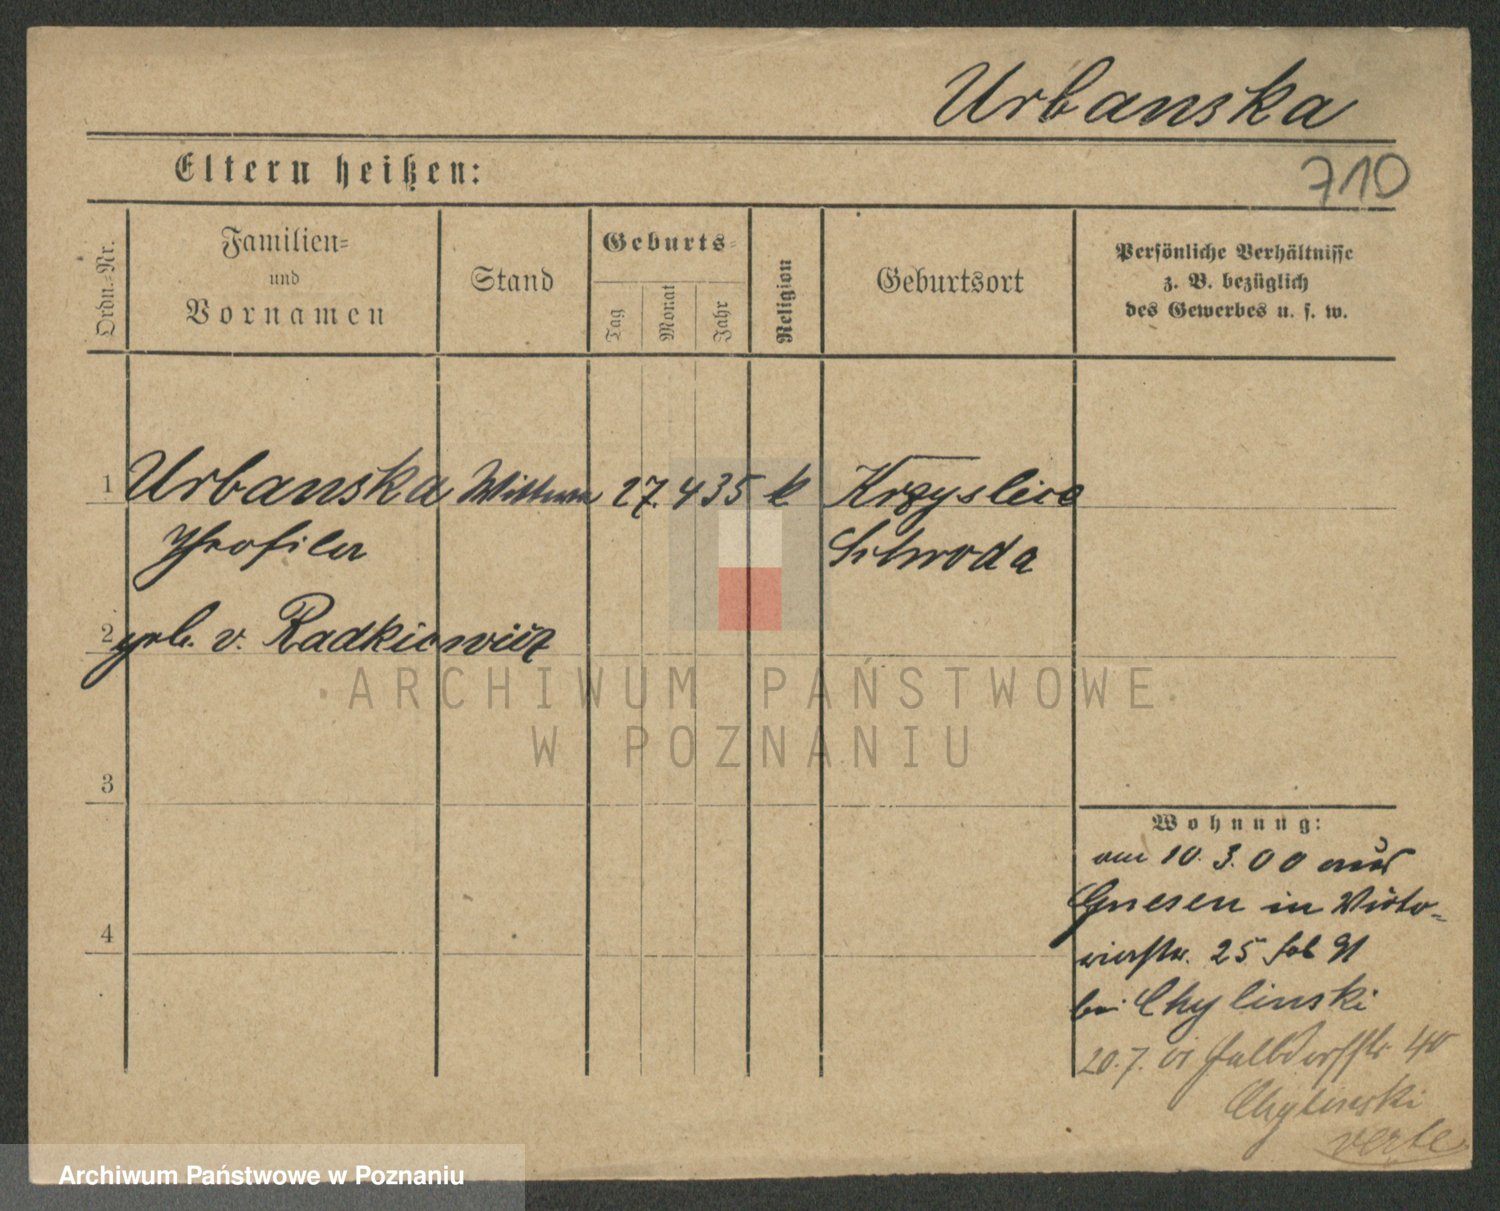 Urbanska
710
Eltern heißen:
Ordn.-Nr.
Familien-
und
Vornamen
Stand
Geburts-
Tag
Monat
Jahr
Religion
Geburtsort
Persönliche Verhältnisse
z. B. bezüglich
des Gewerbes u. s. w.
1 Urbanska Wittwe 27. 4 35 k
Schroda
2 geb. v. Radkiewicz
3
4
Wohnung:
am 10. 3. 00 aus
Gnesen in Victo-
riastr. 25
bei Chylinski
20. 7. 01 40
Chylinski
verte
ARCHIWUM PAŃSTWOWE
W POZNANIU
Archiwum Państwowe w Poznaniu